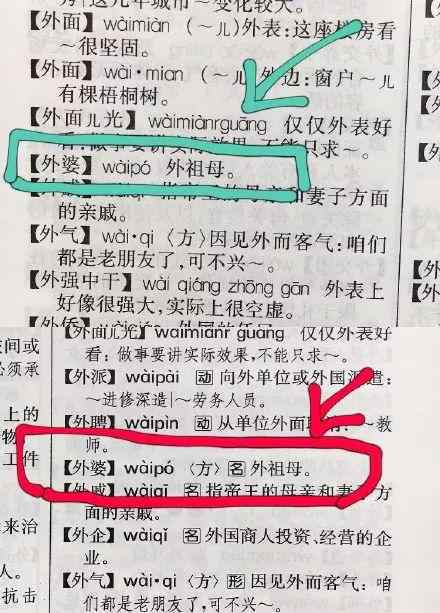 变化较大。
【外面】wàimiàn（～儿）外表:这座楼房看
～很坚固。
【外面】wài·mian（～儿）外边:窗户～儿
有棵梧桐树。
【外面儿光】wàimiànrguāng 仅仅外表好
不能只求～。
【外婆】wàipó 外祖母。
和妻子方面
的亲戚。
【外气】wài·qi〈方〉因见外而客气:咱们
都是老朋友了,可不兴～。
【外强中干】wài qiáng zhōng gān 外表上
好像很强大,实际上很空虚。
【外
【外
【外
【外
【外
【外面儿光】wàimiànr guāng 仅仅外表好
看：做事要讲实际效果,不能只求～。
【外派】wàipài 动 向外单位或外国派遣：
～进修深造|～劳务人员。
【外聘】wàipìn 动 从单位外面
～教
师。
【外婆】wàipó〈方〉名 外祖母。
【外戚】wàiqī 名 指帝王的母亲和妻子方
面的亲戚。
【外企】wàiqǐ 名 外国商人投资、经营的企
业。
【外气】wài·qi〈方〉形 因见外而客气：咱
们都是老朋友了,可不兴～。
间或
必须承
上的
物
工件
来治
人。
抗击